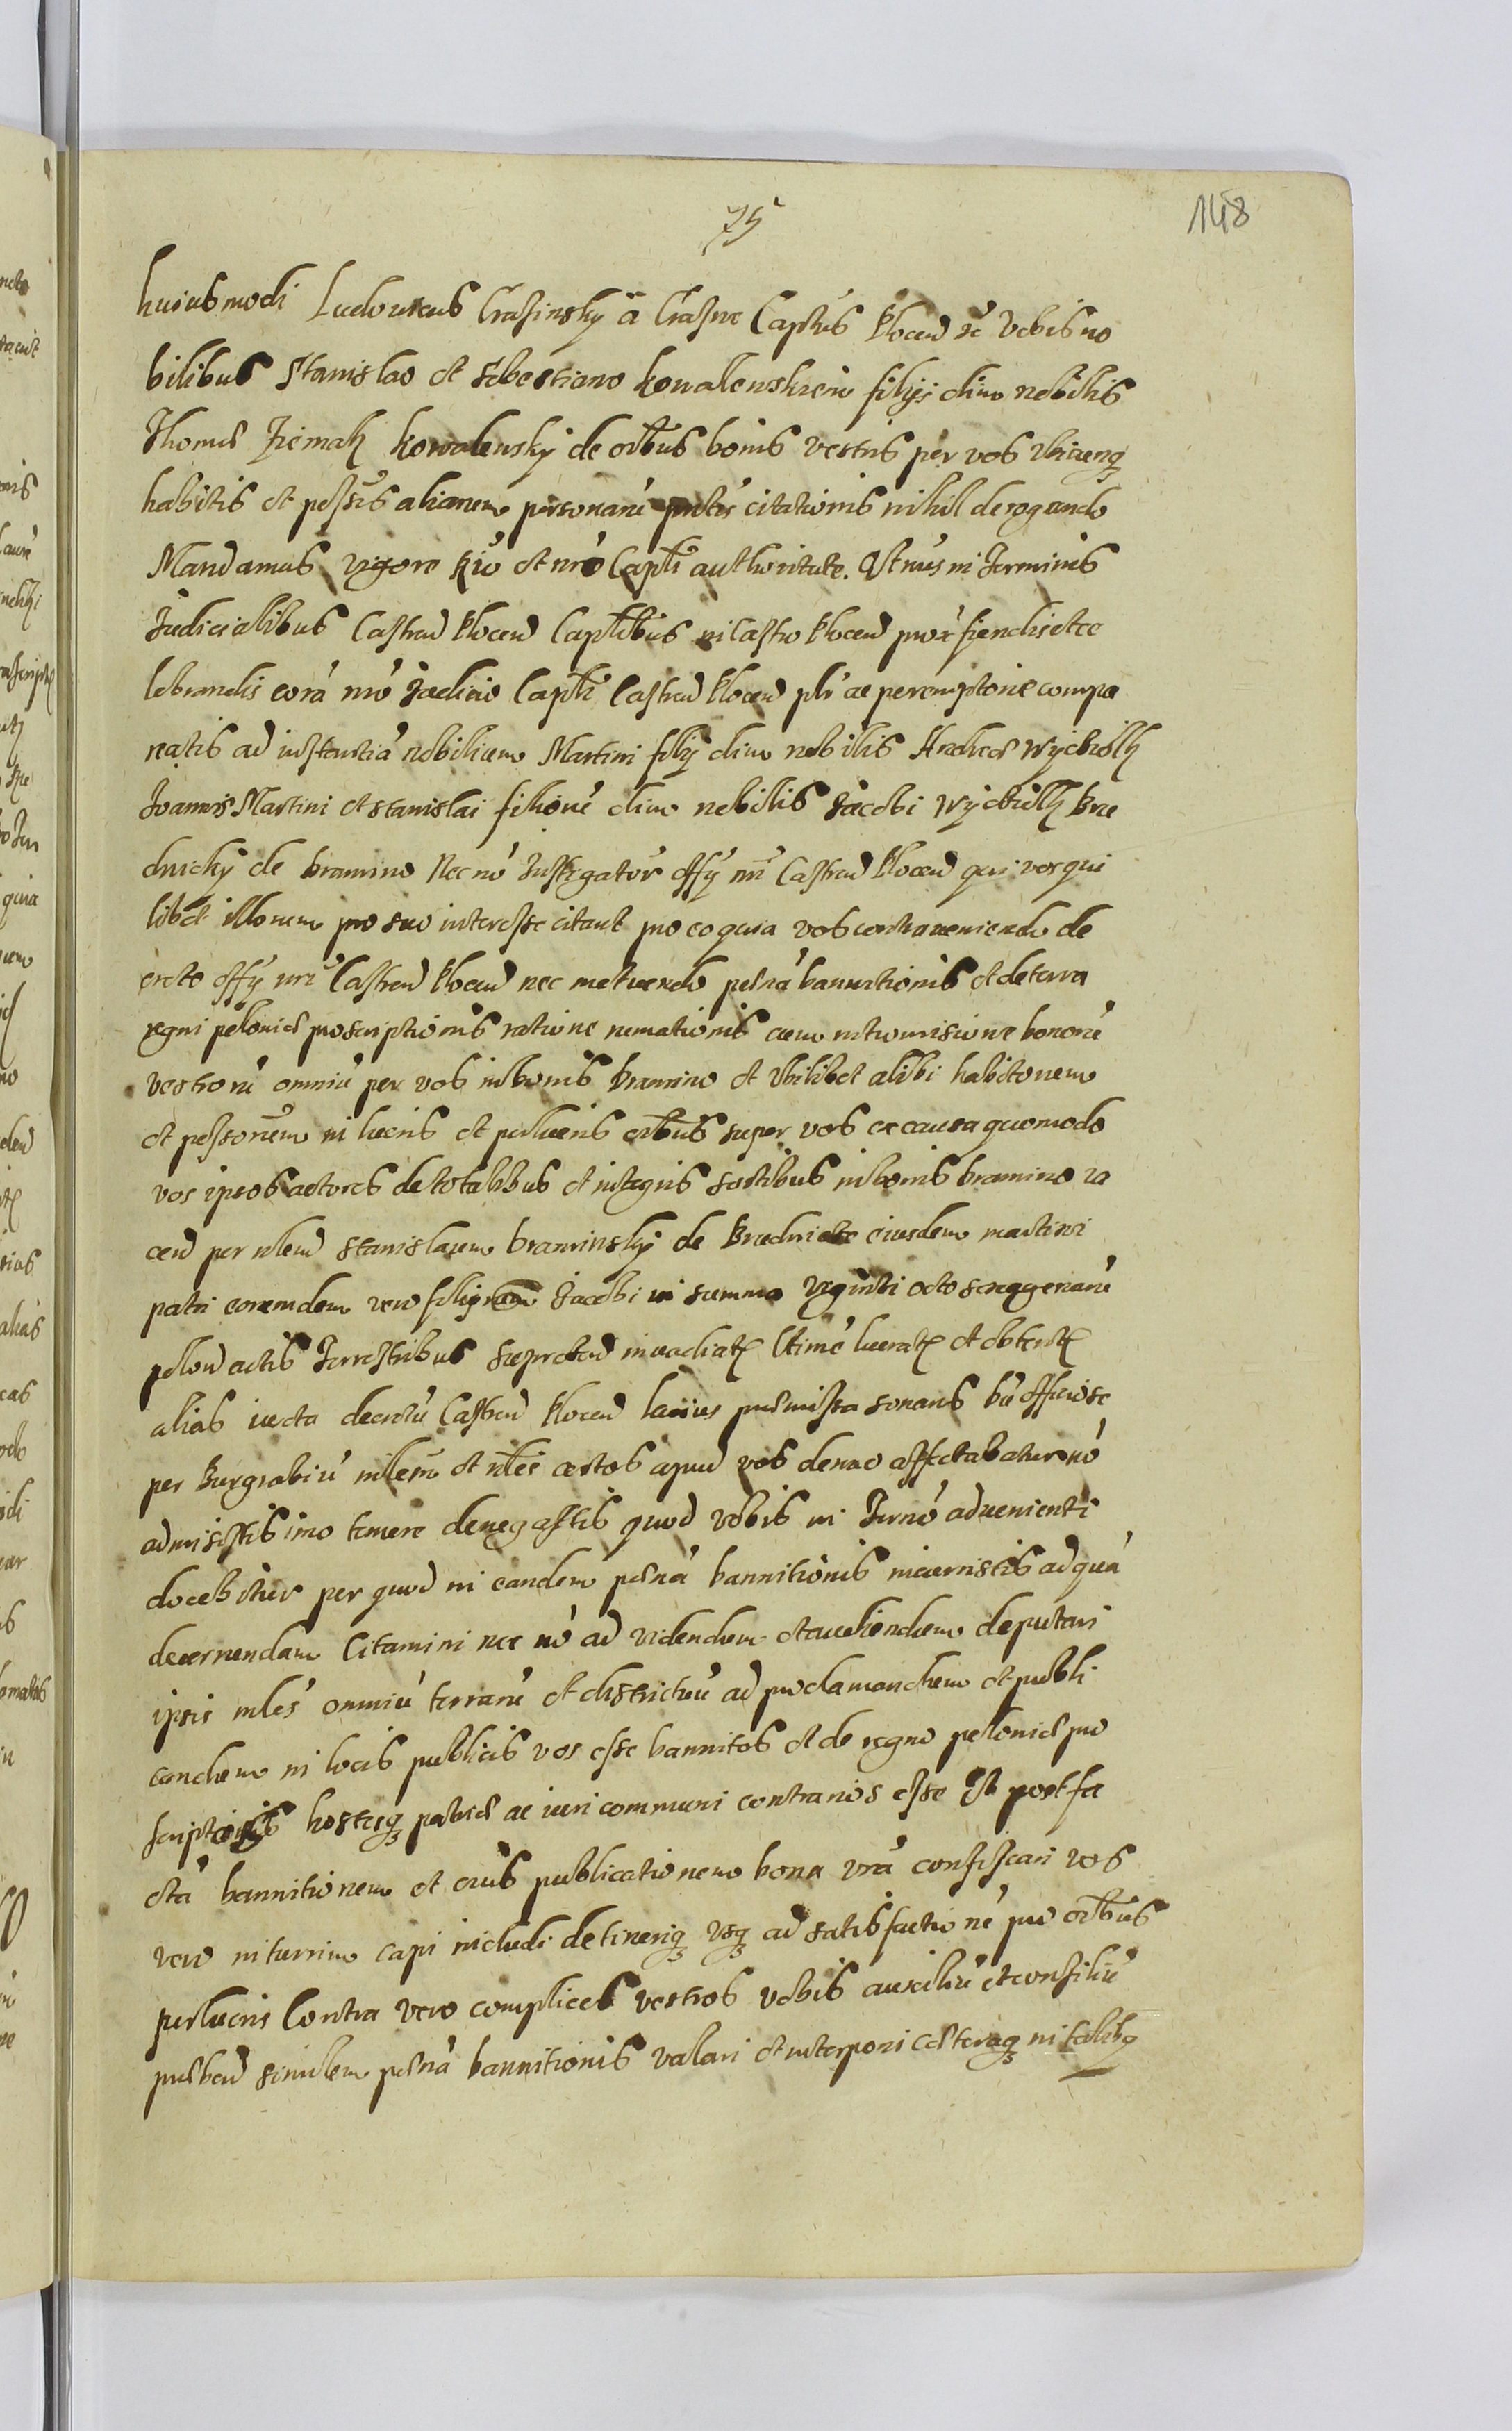 75
148
huiusmodi Ludouicus Crasinsky a Crasne Captus Plocen̄ &c Vobis no
bilibus Stanislao et Sebestiano Kowalewskiem filijs olim nobilis
Thomæ Kowalewsky de oībus bonis vestris per vos vbicunq3
habitis et possīs aliarum personarū citationis nihil derogando
Mandamus vigore et nrō Capti authoritate. Vt in Terminis
Judicialibus Castren̄ Plocen̄ Captibus in Castro Plocen̄ prox̀ fiendis et ce
lebrandis corā nrō Judicio Capti Castren̄ Plocen̄ plr̀ ac peremptorie compa
reatis ad instantiā nobilium Martini filij olim nobilis Andreæ
Joannis Martini et Stanislai filiorū olim nobilis Jacobi Bre
dnicky de bramino Nec nō Instigatoŕ offÿ nrī Castren̄ Plocen̄ qui vos qui
libet illorum pro suo interesse citant pro eo quia vos contraueniendo de
creto offÿ nrī Castren̄ Plocen̄ nec metuendo pœnā bannitionis et de terra
regni poloniæ proscriptionis ratione remationis cum intromisione bonorū
vestrorū omniū per vos in bonis bramino et Vbilibet alibi habitorum
et possorum in lucris et perlucris oībus super vos ex causa quomodo
vos ipsos actores de totalibus et integris sortibus in bonis bramino ia
cen̄ per nlem̄ Stanislaum braminsky de Brudnicze eiusdem martini
patri eorundem vero filiorum Jacobi in summa viginti octo sexagenarū
polon̄ actis Terrestribus inuadiat Vltimē lucrat et obtent
alias iuxta decretū Castren̄ Plocen̄ latius præmissa sonans officiose
per Burgrabiū nlem̄ et nles certos apud vos denuo affectabatur nō
admisistis imo temere denegastis quod vobis in Terno adueniente
docebitur per quod in eandem pœnā bannitionis incurristis ad quā
decernendam Citamini nec nō ad videndum et audiendum deputari
ipsis nles omniū terrarū et districtuū ad proclamandum et publi
candum in locis publicis vos esse bannitos et de regno poloniæ pro
scriptos hostesq3 patriæ ac iuri communi contrarios esse Et post fa
ctā bannitionem et eius publicationem bona vrā confiscari vos
vero in turrim capi includi detineriq3 vsq3 ad satisfactionē pro oībus
perlucris Contra vero complices vestros vobis auxiliū et consiliū
præben̄ similem pœnā bannitionis valari et interponi cæteraq3 in talibq